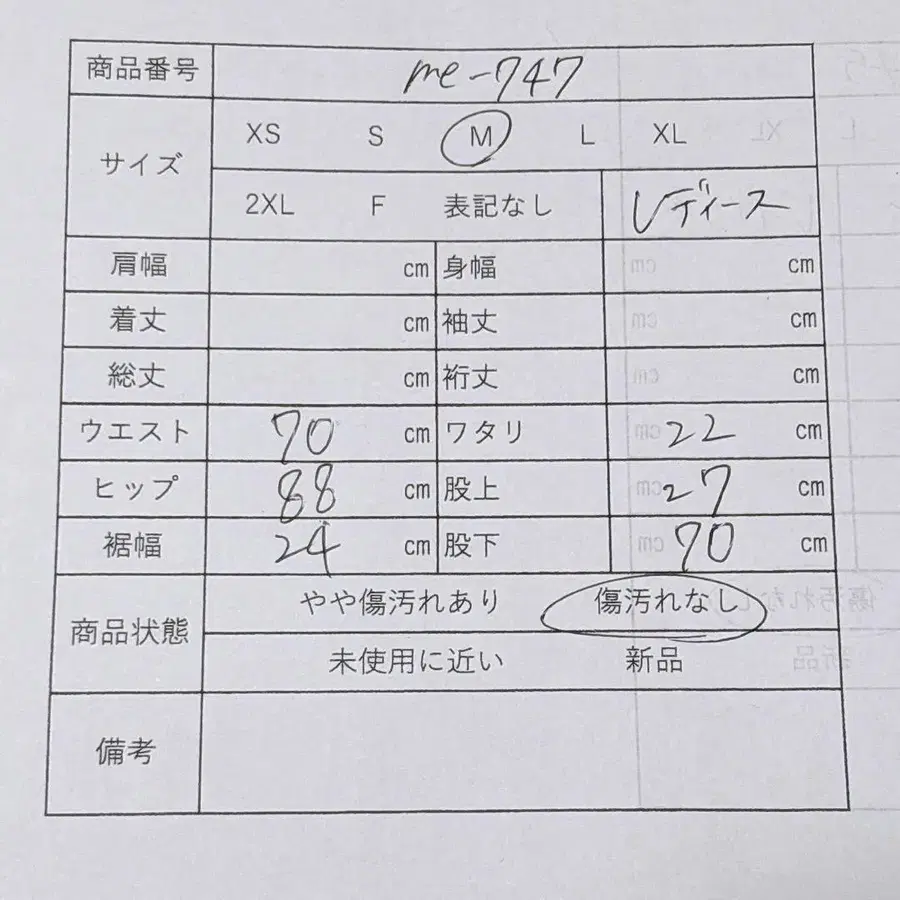 商品番号 me-747
サイズ XS S M L XL
2XL F 表記なし レディース
肩幅 cm 身幅 cm
着丈 cm 袖丈 cm
総丈 cm 裄丈 cm
ウエスト 70 cm ワタリ 22 cm
ヒップ 88 cm 股上 27 cm
裾幅 24 cm 股下 70 cm
商品状態 やや傷汚れあり 傷汚れなし
未使用に近い 新品
備考